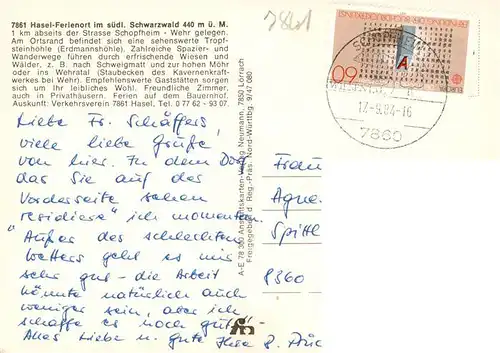 7861 Hasel-Ferienort im südl. Schwarzwald 440 m ü. M.
1 km abseits der Strasse Schopfheim - Wehr gelegen.
Am Ortsrand befindet sich eine sehenswerte Tropf-
steinhöhle (Erdmannshöhle). Zahlreiche Spazier- und
Wanderwege führen durch erfrischende Wiesen und
Wälder, z. B. nach Schweigmatt und zur hohen Möhr
oder ins Wehratal (Staubecken des Kavernenkraft-
werkes bei Wehr). Empfehlenswerte Gaststätten sorgen
sich um Ihr leibliches Wohl. Freundliche Zimmer,
auch in Privathäusern. Ferien auf dem Bauernhof.
Auskunft: Verkehrsverein 7861 Hasel, Tel. 0 77 62 - 93 07.
Liebe Fr. Schäffers,
viele liebe Grüße
von hier. In dem Dorf
das Sie auf der
Vorderseite sehen
"residiere" ich momentan.
Außer des schlechten
Wetters geht es mir
sehr gut - die Arbeit
könnte natürlich auch
weniger sein, aber ich
schaffe es noch gut!
Alles Liebe u. gute
A-E 78 360 Ansichtskarten-Verlag Neumann, 7850 Lörrach
Freigegeben d. Reg.-Präs. Nord-Württbg. 9/47 080
7861
60
A
EUROPA
17-9.84-16
7860
Frau
Agne
Spittl
8360